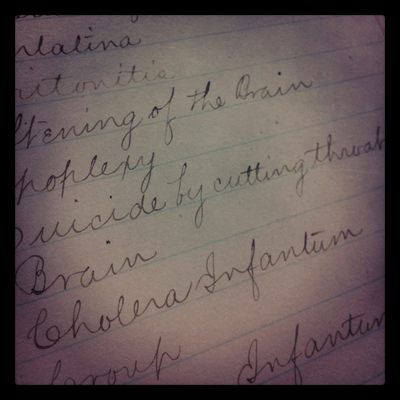 rlatina
ritonitis
ftening of the Brain
poplexy
Suicide by cutting throat
Brain
Cholera Infantum
Croup Infantum